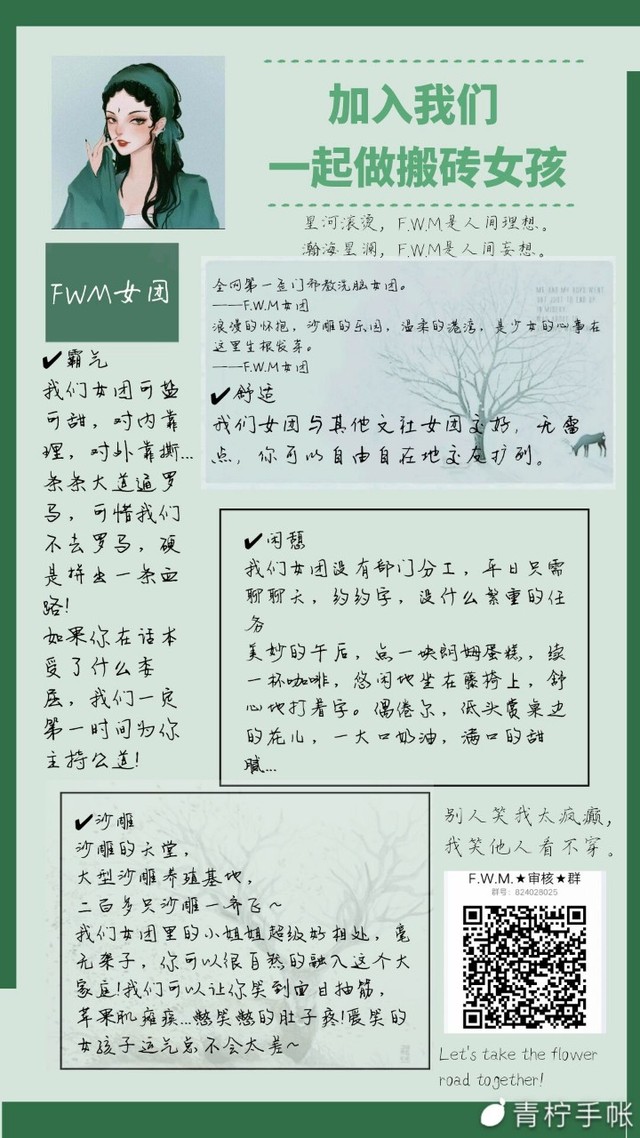 加入我们
一起做搬砖女孩
星河滚烫，F.W.M是人间理想。
瀚海星澜，F.W.M是人间妄想。
FWM女团
全网第一歪门邪教洗脑女团。
——F.W.M女团
浪漫的怀抱，沙雕的乐园，温柔的港湾，是少女的心事在
这里生根发芽。
——F.W.M女团
✔舒适
我们女团与其他文社女团交好，无雷
点，你可以自由自在地交友扩列。
✔霸气
我们女团可盐
可甜，对内靠
理，对外靠撕…
条条大道通罗
马，可惜我们
不去罗马，硬
是拼出一条血
路！
如果你在话本
受了什么委
屈，我们一定
第一时间为你
主持公道！
✔闲憩
我们女团没有部门分工，平日只需
聊聊天，约约字，没什么繁重的任
务
美妙的午后，点一块焖姆蛋糕，续
一杯咖啡，悠闲地坐在藤椅上，舒
心地打着字。偶倦尔，低头赏桌边
的花儿，一大口奶油，满口的甜
腻…
✔沙雕
沙雕的天堂，
大型沙雕养殖基地，
二百多只沙雕一齐飞～
我们女团里的小姐姐超级好相处，毫
无架子，你可以很自然的融入这个大
家庭！我们可以让你笑到面目抽筋，
苹果肌瘫痪…憋笑憋的肚子疼！爱笑的
女孩子运气总不会太差～
别人笑我太疯癫，
我笑他人看不穿。
F.W.M.★审核★群
群号：824028025
Let's take the flower
road together!
青柠手帐